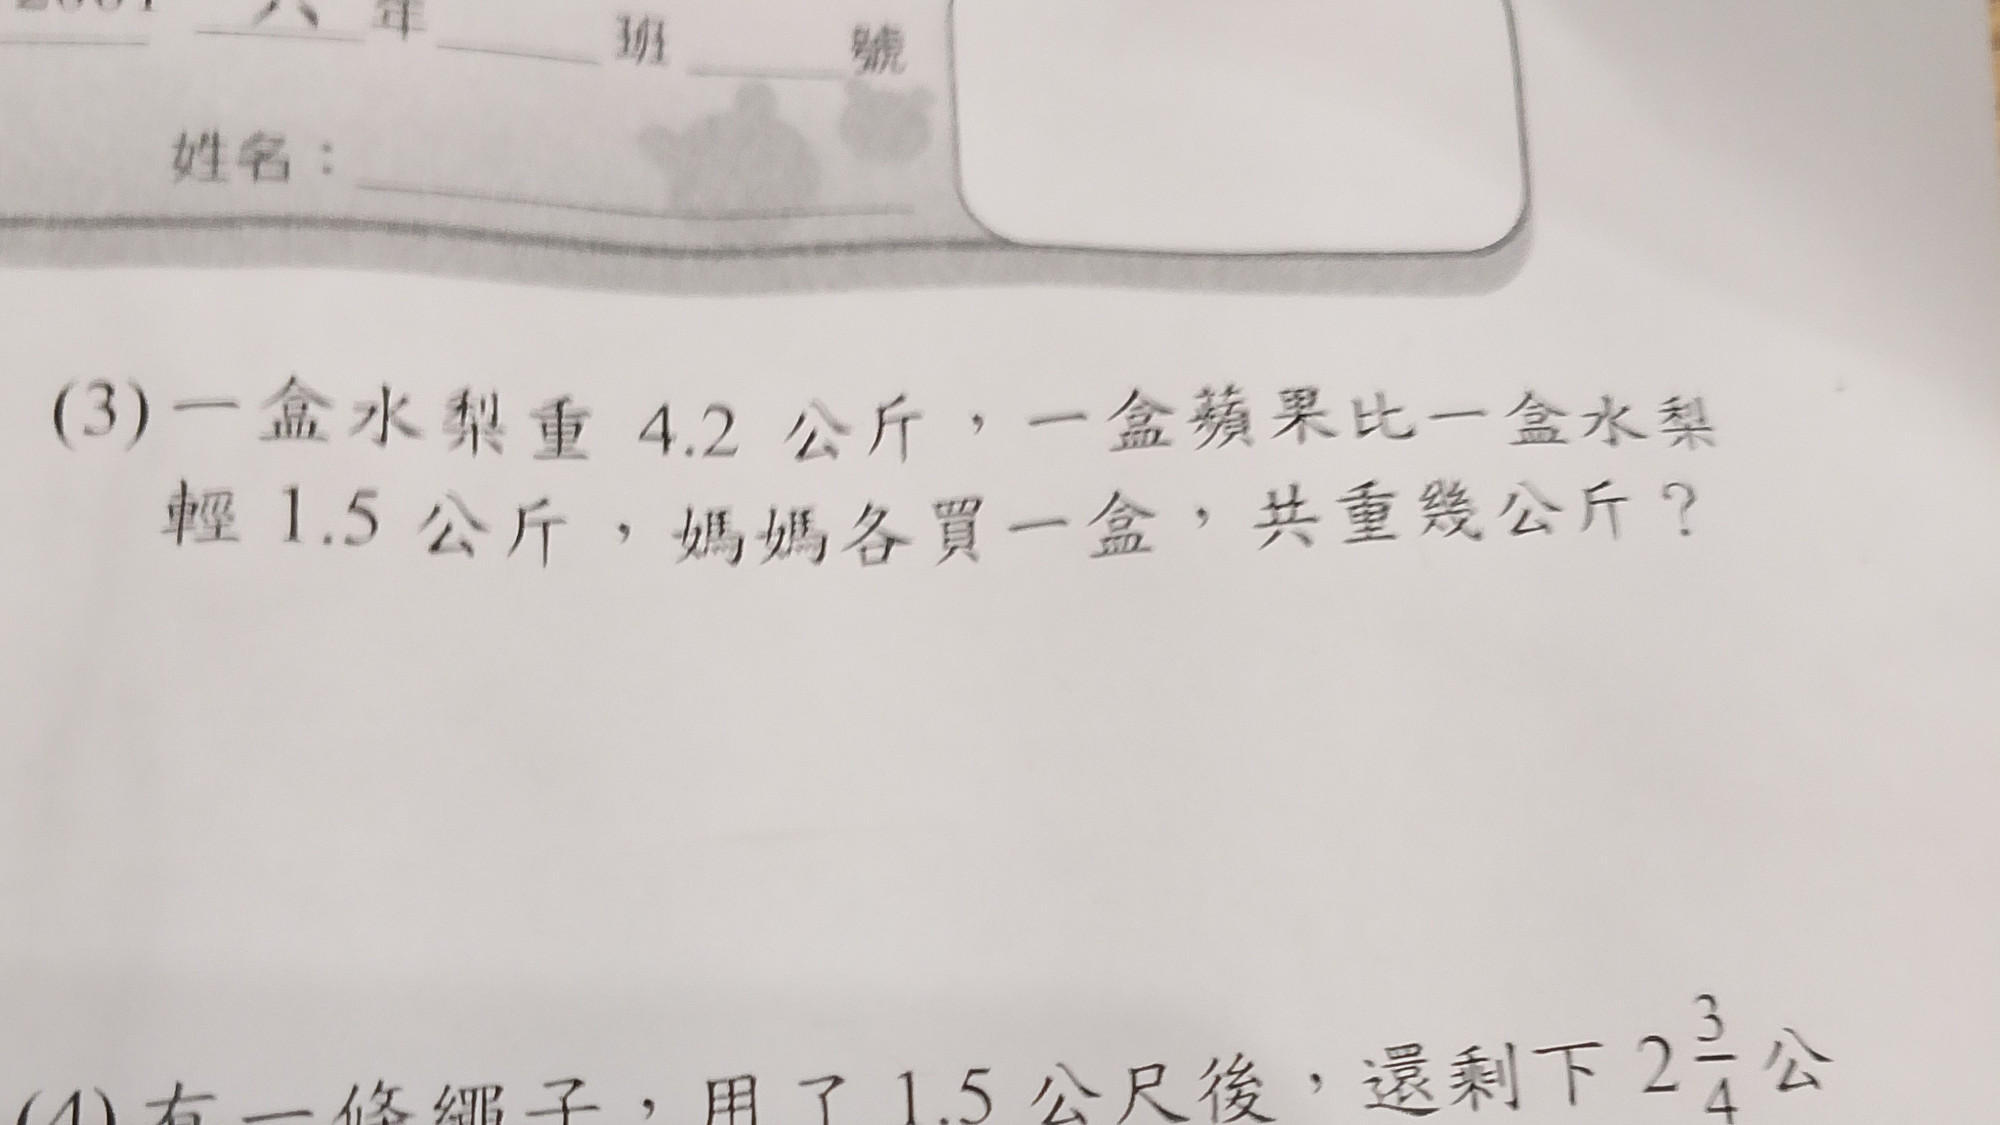 六 年 班 號
姓名：
(3) 一盒水梨重 4.2 公斤，一盒蘋果比一盒水梨
輕 1.5 公斤，媽媽各買一盒，共重幾公斤？
(4) 有一條繩子，用了 1.5 公尺後，還剩下 2 3/4 公